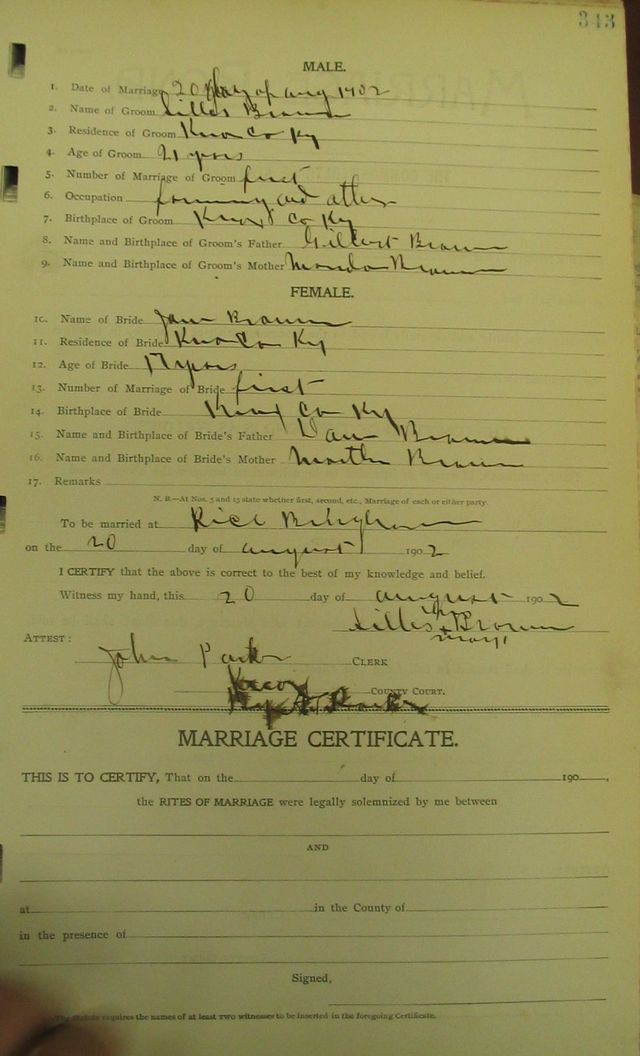 343
MALE.
1. Date of Marriage 20 day of aug 1902
2. Name of Groom Silles Brown
3. Residence of Groom Knox Co Ky
4. Age of Groom 21 years
5. Number of Marriage of Groom first
6. Occupation farming and other
7. Birthplace of Groom Knox Co Ky
8. Name and Birthplace of Groom's Father Gilbert Brown
9. Name and Birthplace of Groom's Mother Brown
FEMALE.
10. Name of Bride Jane Brown
11. Residence of Bride Knox Co Ky
12. Age of Bride 17 years
13. Number of Marriage of Bride first
14. Birthplace of Bride Knox Co Ky
15. Name and Birthplace of Bride's Father Dan Brown
16. Name and Birthplace of Bride's Mother Brown
17. Remarks
N. B.—At Nos. 5 and 13 state whether first, second, etc., Marriage of each or either party.
To be married at
on the 20 day of august 1902
I CERTIFY that the above is correct to the best of my knowledge and belief.
Witness my hand, this 20 day of august 1902
his
Silles x Brown
mark
ATTEST:
John Parker CLERK
Knox COUNTY COURT.
By Parker
MARRIAGE CERTIFICATE.
THIS IS TO CERTIFY, That on the day of 190 ,
the RITES OF MARRIAGE were legally solemnized by me between
AND
at in the County of
in the presence of
Signed,
The Statute requires the names of at least two witnesses to be inserted in the foregoing Certificate.